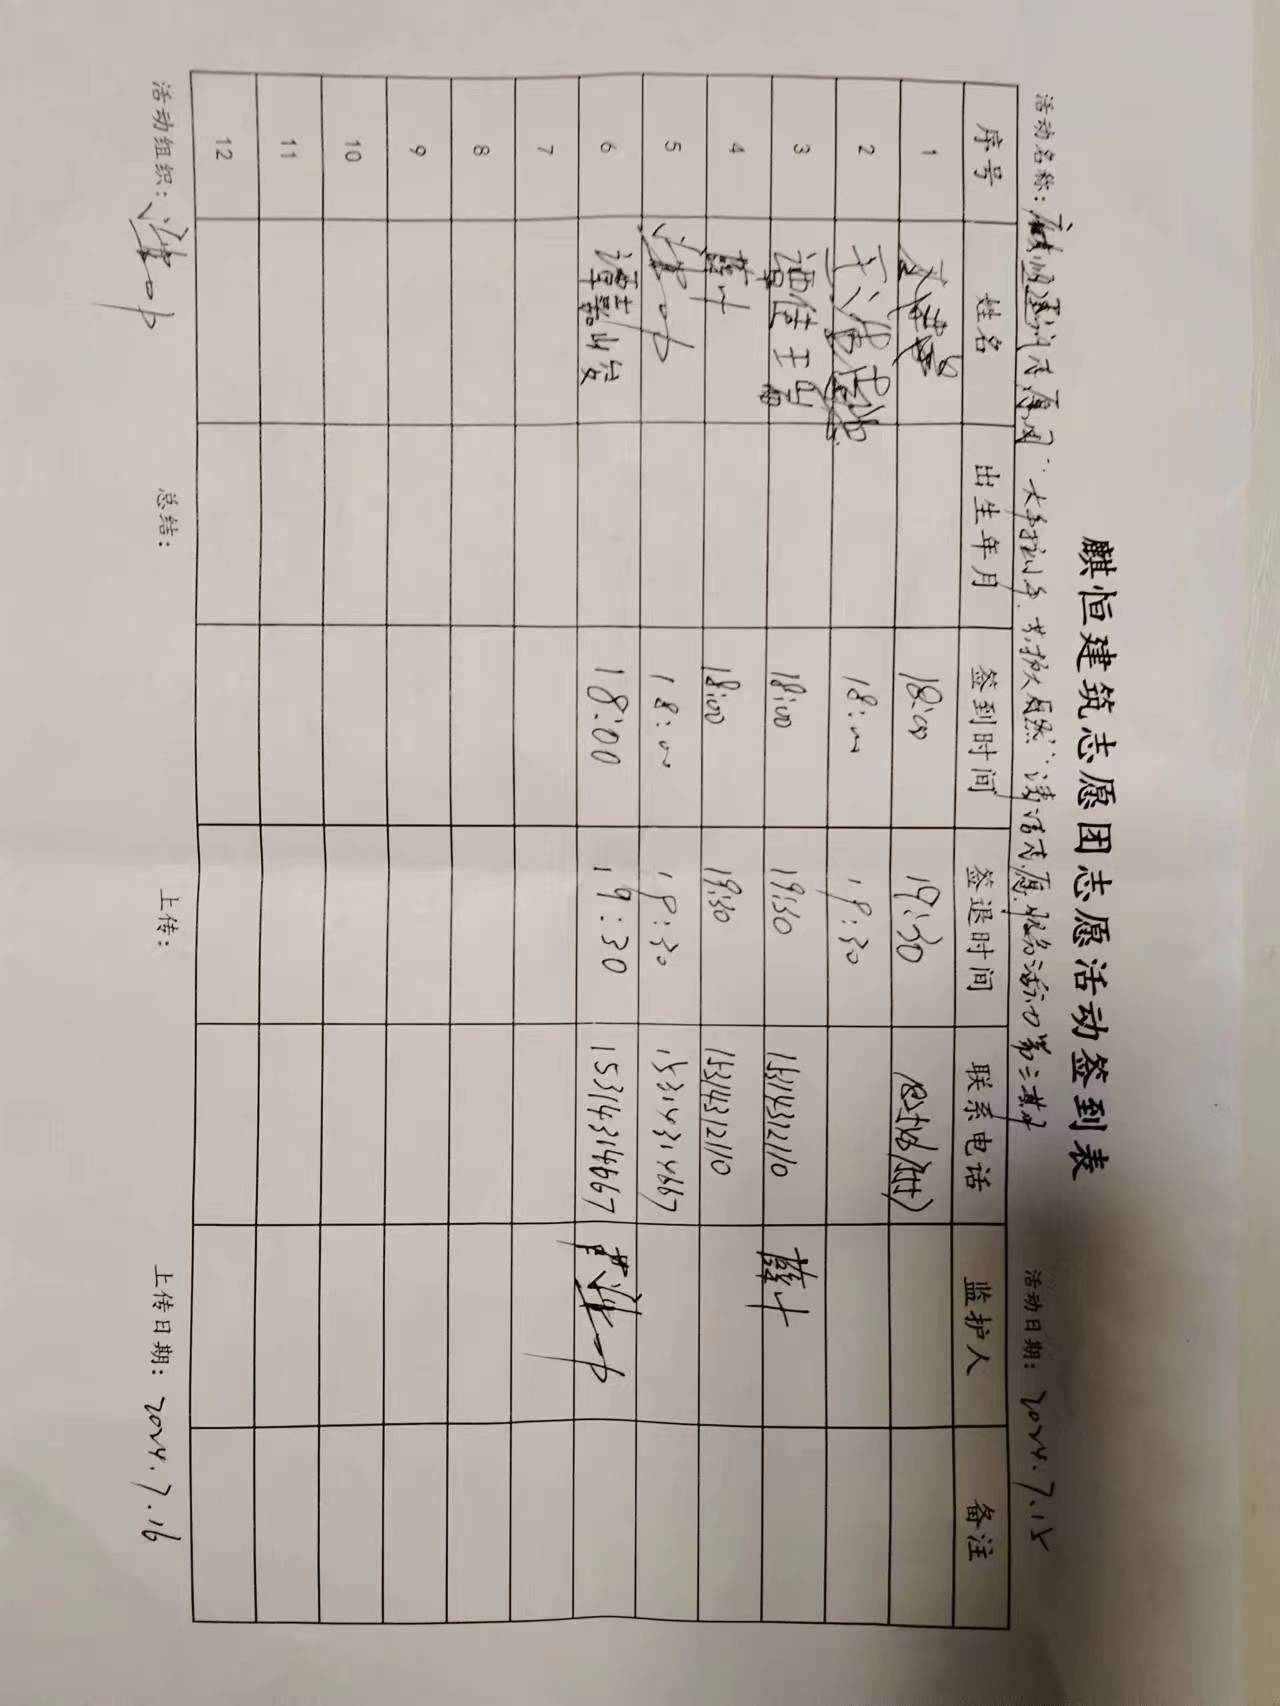 麒恒建筑志愿团志愿活动签到表
活动名称： 志愿团"大手拉小手，共护大自然"清洁志愿服务活动第三期 活动日期：2024.7.15
序号 姓名 出生年月 签到时间 签退时间 联系电话 监护人 备注
1 18:00 19:30
2 18:00 19:30
3 18:00 19:30 15314312110 薛叶
4 薛叶 18:00 19:30 15314312110
5 18:00 19:30 15314314667
6 18:00 19:30 15314314667
7
8
9
10
11
12
活动组织： 总结： 上传： 上传日期：2024.7.16